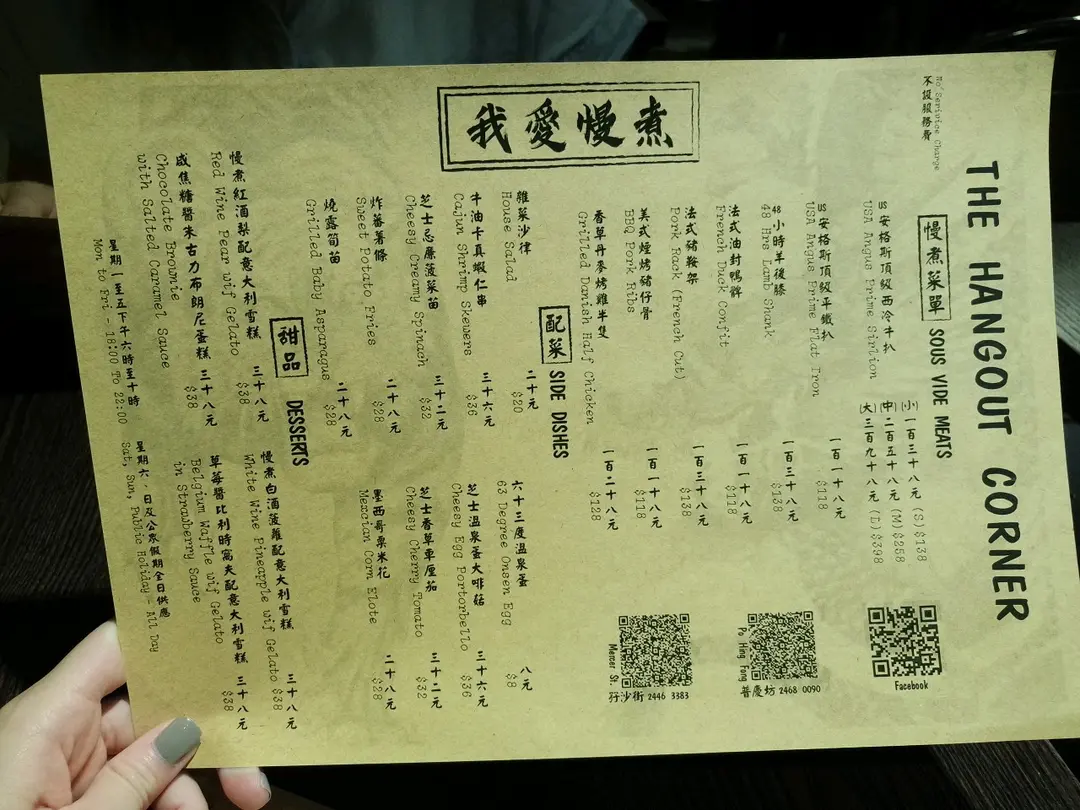 No Serivice Charge
不設服務費
THE HANGOUT CORNER
我愛慢煮
慢煮菜單 SOUS VIDE MEATS
US安格斯頂級西冷牛扒
USA Angus Prime Sirlion
(小)一百三十八元 (S)$138
(中)二百五十八元 (M)$258
(大)三百九十八元 (L)$398
US安格斯頂級平鐵扒 一百一十八元
USA Angus Prime Flat Iron $118
48小時羊後膝 一百三十八元
48 Hrs Lamb Shank $138
法式油封鴨髀 一百一十八元
French Duck Confit $118
法式豬鞍架 一百三十八元
Pork Rack (French Cut) $138
美式煙烤豬仔骨 一百一十八元
BBQ Pork Ribs $118
香草丹麥烤雞半隻 一百二十八元
Grilled Danish Half Chicken $128
Facebook
Po Hing Fong
普慶坊 2468 0090
Mercer St.
孖沙街 2446 3383
配菜 SIDE DISHES
雜菜沙律 二十元
House Salad $20
六十三度溫泉蛋 八元
63 Degree Onsen Egg $8
牛油卡真蝦仁串 三十六元
Cajun Shrimp Skewers $36
芝士溫泉蛋大啡菇 三十六元
Cheesy Egg Portorbello $36
芝士忌廉菠菜苗 三十二元
Cheesy Creamy Spinach $32
芝士香草車厘茄 三十二元
Cheesy Cherry Tomato $32
炸蕃薯條 二十八元
Sweet Potato Fries $28
墨西哥粟米花 二十八元
Mexcian Corn Elote $28
燒露筍苗 二十八元
Grilled Baby Asparagus $28
甜品 DESSERTS
慢煮紅酒梨配意大利雪糕 三十八元
Red Wine Pear wif Gelato $38
慢煮白酒菠蘿配意大利雪糕 三十八元
White Wine Pineapple wif Gelato $38
咸焦糖醬朱古力布朗尼蛋糕 三十八元
Chocolate Brownie $38
with Salted Caramel Sauce
草莓醬比利時窩夫配意大利雪糕 三十八元
Belgium Waffle wif Gelato $38
in Strawberry Sauce
星期一至五下午六時至十時
Mon to Fri - 18:00 To 22:00
星期六、日及公眾假期全日供應
Sat, Sun, Public Holiday - All Day